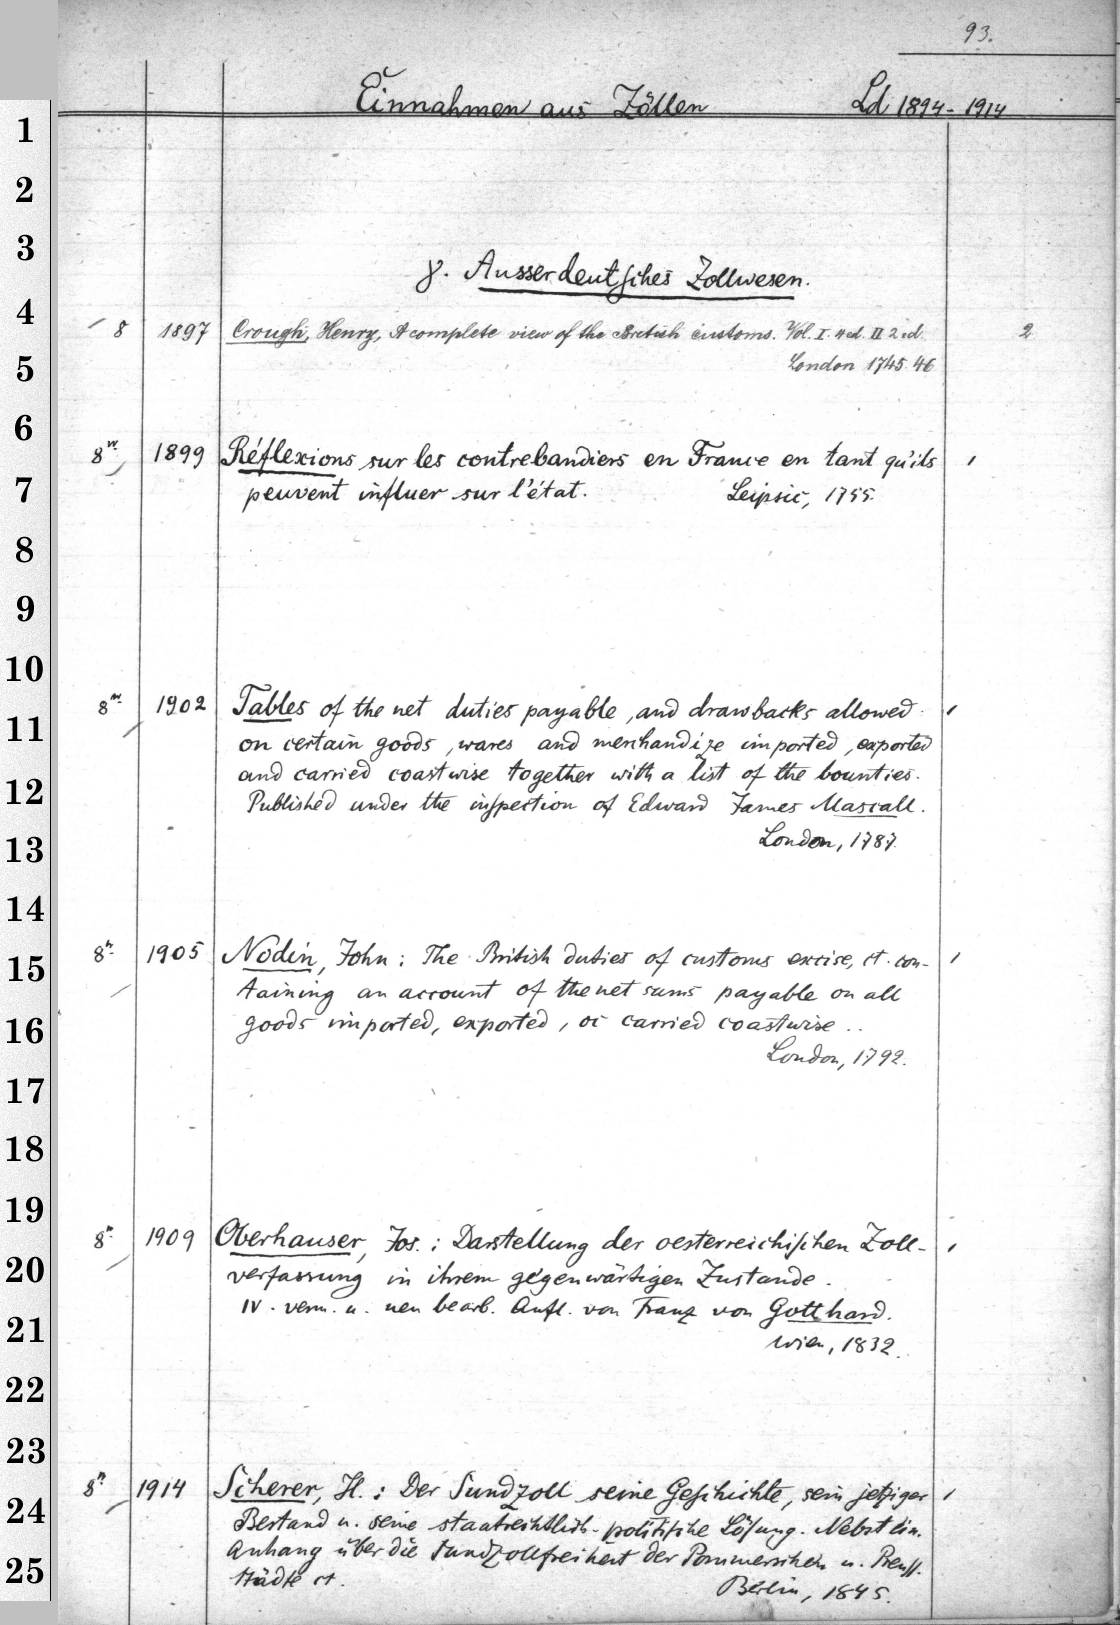 93.
Einnahmen aus Zöllen Ld 1894-1914
1
2
3
γ. Ausserdeutsches Zollwesen.
4
8 1897 Crough, Henry, A complete view of the British customs. Vol. I. 4 ed. II 2 ed. 2
London 1745. 46
5
6
8 1899 Réflexions sur les contrebandiers en France en tant qu'ils 1
7
peuvent influer sur l'état. Leipsic, 1755.
8
9
10
8 1902 Tables of the net duties payable, and drawbacks allowed 1
11
on certain goods, wares and merchandize imported, exported
and carried coastwise together with a list of the bounties.
12
Published under the inspection of Edward James Mascall.
13
London, 1787.
14
8 1905 Nodin, John: The British duties of customs excise, et. con- 1
15
taining an account of the net sums payable on all
16
goods imported, exported, or carried coastwise ..
London, 1792.
17
18
19
8 1909 Oberhauser, Jos.: Darstellung der oesterreichischen Zoll- 1
20
verfassung in ihrem gegenwärtigen Zustande.
IV. verm. u. neu bearb. Aufl. von Franz von Gotthard.
21
Wien, 1832.
22
23
8 1914 Scherer, H.: Der Sundzoll seine Geschichte, sein jetziger 1
24
Bestand u. seine staatrechtlich-politische Lösung. Nebst ein.
Anhang über die Sundzollfreiheit der Pommerschen u. Preuss.
25
Städte et. Berlin, 1845.